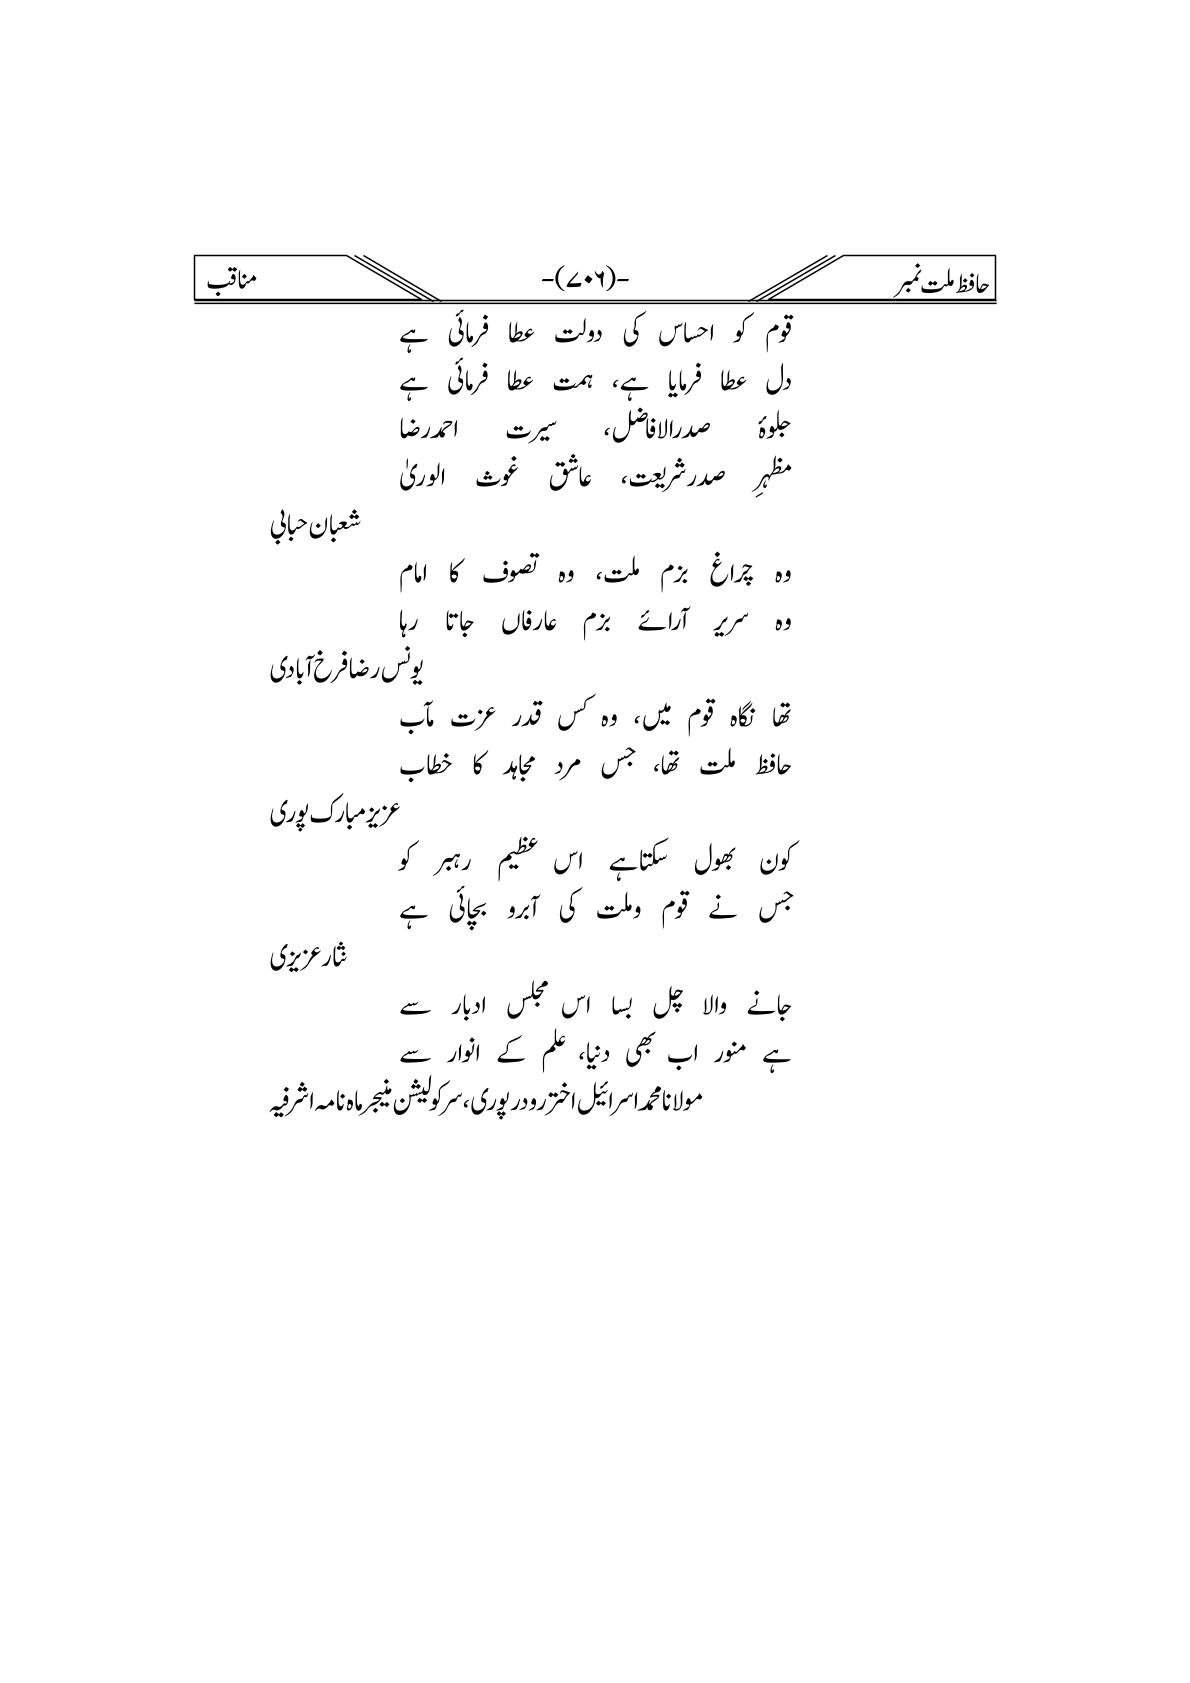 حافظ ملت نمبر -(۷۰۶)- مناقب
قوم کو احساس کی دولت عطا فرمائی ہے
دل عطا فرمایا ہے، ہمت عطا فرمائی ہے
جلوۂ صدرالافاضل، سیرت احمدرضا
مظہرِ صدرشریعت، عاشق غوث الوریٰ
شعبان حبابی
وہ چراغ بزم ملت، وہ تصوف کا امام
وہ سریر آرائے بزم عارفاں جاتا رہا
یونس رضا فرخ آبادی
تھا نگاہ قوم میں، وہ کس قدر عزت مآب
حافظ ملت تھا، جس مرد مجاہد کا خطاب
عزیز مبارک پوری
کون بھول سکتاہے اس عظیم رہبر کو
جس نے قوم وملت کی آبرو بچائی ہے
نثار عزیزی
جانے والا چل بسا اس مجلس ادبار سے
ہے منور اب بھی دنیا، علم کے انوار سے
مولانا محمد اسرائیل اختر رودر پوری، سرکولیشن منیجر ماہ نامہ اشرفیہ